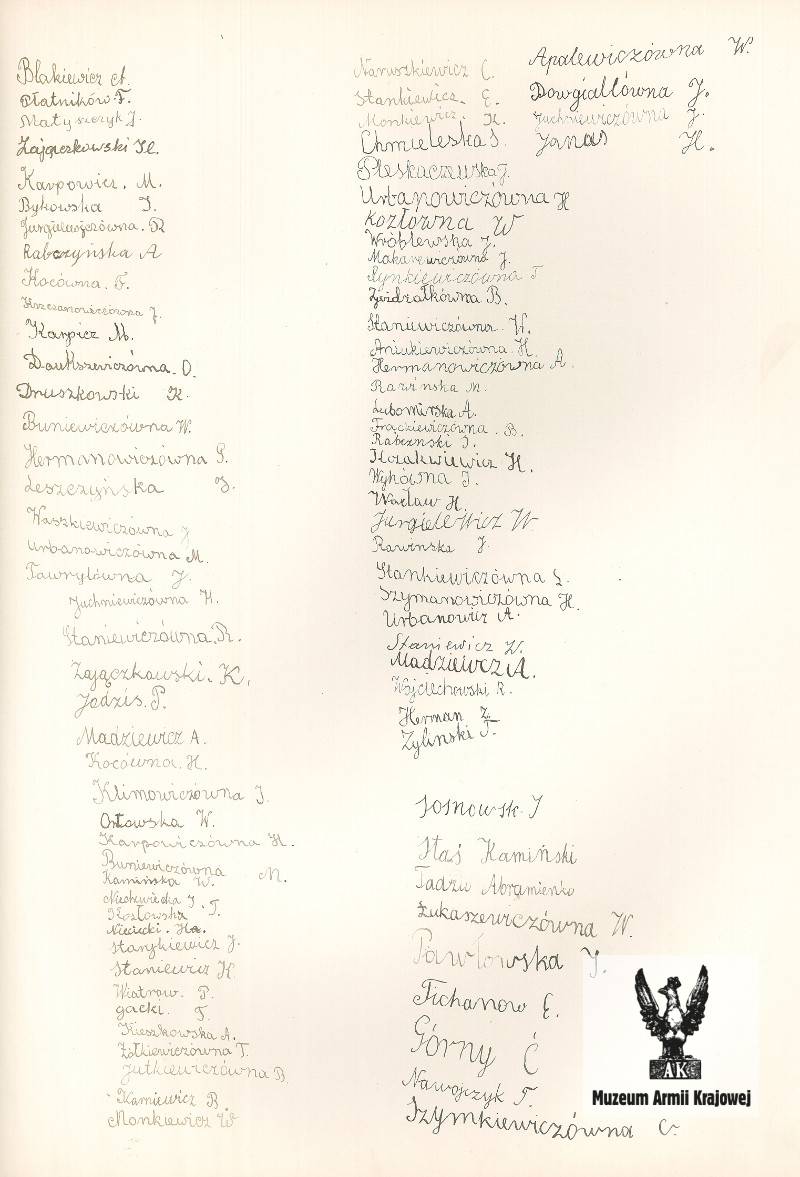 Blakiewicz A.
Płatników. F.
Matyszczyk J.
Zajączkowski H.
Karpowicz. M.
Bykowska J.
Jurgielewiczówna. R
Rabczyńska A
Kocówna. F.
Krzczanowiczówna J.
Karpicz M.
Daukszewiczówna. O.
Druszkowski K.
Buniewiczówna W.
Hermanowiczówna S.
Leszczyńska J.
Waszkiewiczówna J
Urbanowiczówna M.
Gawryłówna J.
Juchniewiczówna H.
Staniewiczówna, R.
Zajączkowski. K.
Jodzis. P.
Madziewicz A.
Kocówna. H.
Klimowiczówna J.
Orłowska W.
Karpowiczówna H.
Buniewiczówna M.
Kamińska W.
Niechwiecka J.
Kozłowska T.
Nieciecki. Ha.
Starykiewicz J.
Staniewicz H
Wiatrow. P.
gacki. F.
Kieszkowska A.
Żółkiewiczówna T.
Jutkiewiczówna B.
Kamiewicz B.
Monkiewicz W
Naruszkiewicz C.
Stankiewicz. E.
Monkiewicz. K.
Chmieleska S.
Pleskaczewska J.
Urbanowiczówna H
Kozłówna W
Wróblewska J.
Makarewiczówna J.
Synkiewiczówna T
Źwidzałkówna B.
Staniewiczówna W.
Aniukiewiczówna. H.
Hermanowiczówna A.
Rawińska M.
Lubomirska A.
Frąckiewiczówna. B.
Rabcznski J.
Kozakwiewicz H.
Wyhówna J.
Wacław H.
Jurgielewicz W
Rawinska J.
Stankiewiczówna L.
Szymanowiczówna H.
Urbanowicz A.
Staniewicz W.
Madzieiwcz A.
Wojciechowski R.
Herman Z.
Żyliński F.
Sosnowsk. J
Staś Kamiński
Tadziu Abramienko
Łukaszewiczówna W.
Pawłowska J.
Tichanow E.
Górny Ć
Nawojczyk T.
Szymkiewiczówna C.
Apalewiczówna W.
Dowgiałłówna J.
Juchniewiczówna J.
Janas H.
AK
Muzeum Armii Krajowej